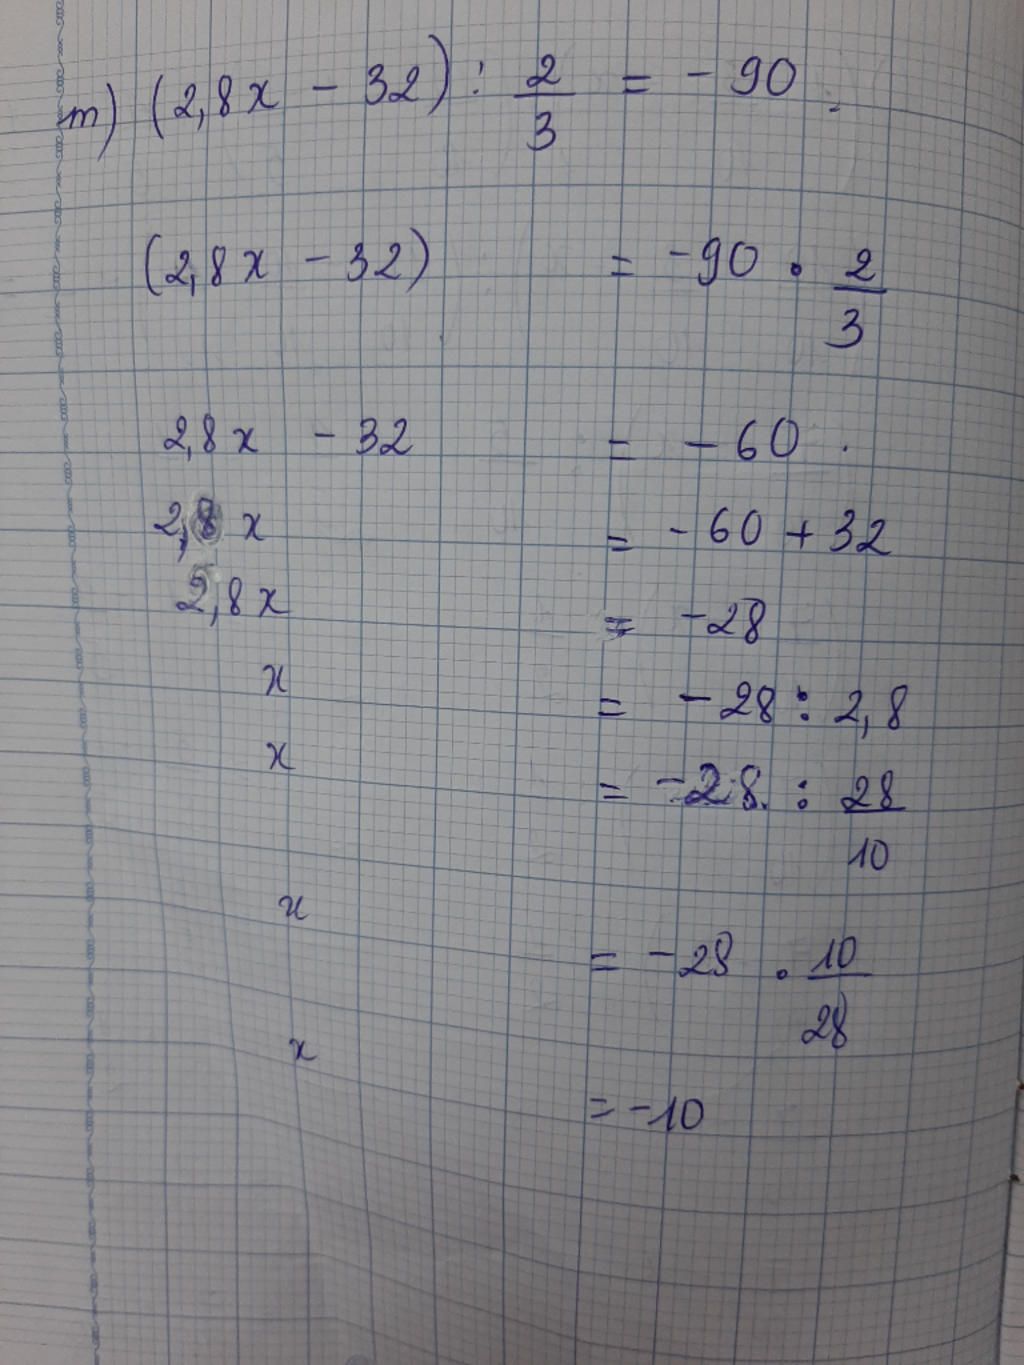 m) (2,8x - 32) : 2/3 = - 90
(2,8x - 32) = -90 . 2/3
2,8x - 32 = - 60
2,8x = -60 + 32
2,8x = -28
x = -28 : 2,8
x = -28 : 28/10
x = -28 . 10/28
x = -10